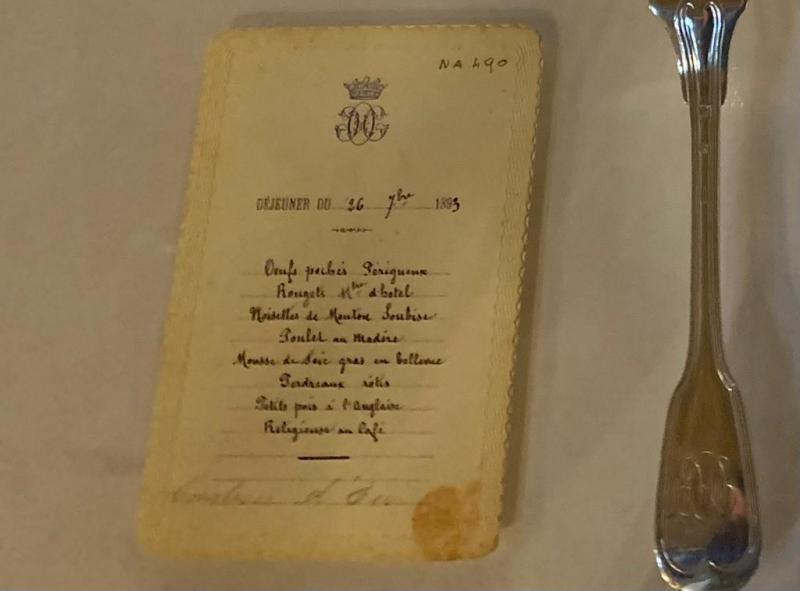 NA 490
DÉJEUNER DU 26 7bre 1893
Oeufs pochés Périgueux
Rougets Mtre d'hotel
Noisettes de Mouton Soubise
Poulet au madère
Mousse de foie gras en bellevue
Perdreaux rôtis
Petits pois à l'Anglaise
Religieuse au Café